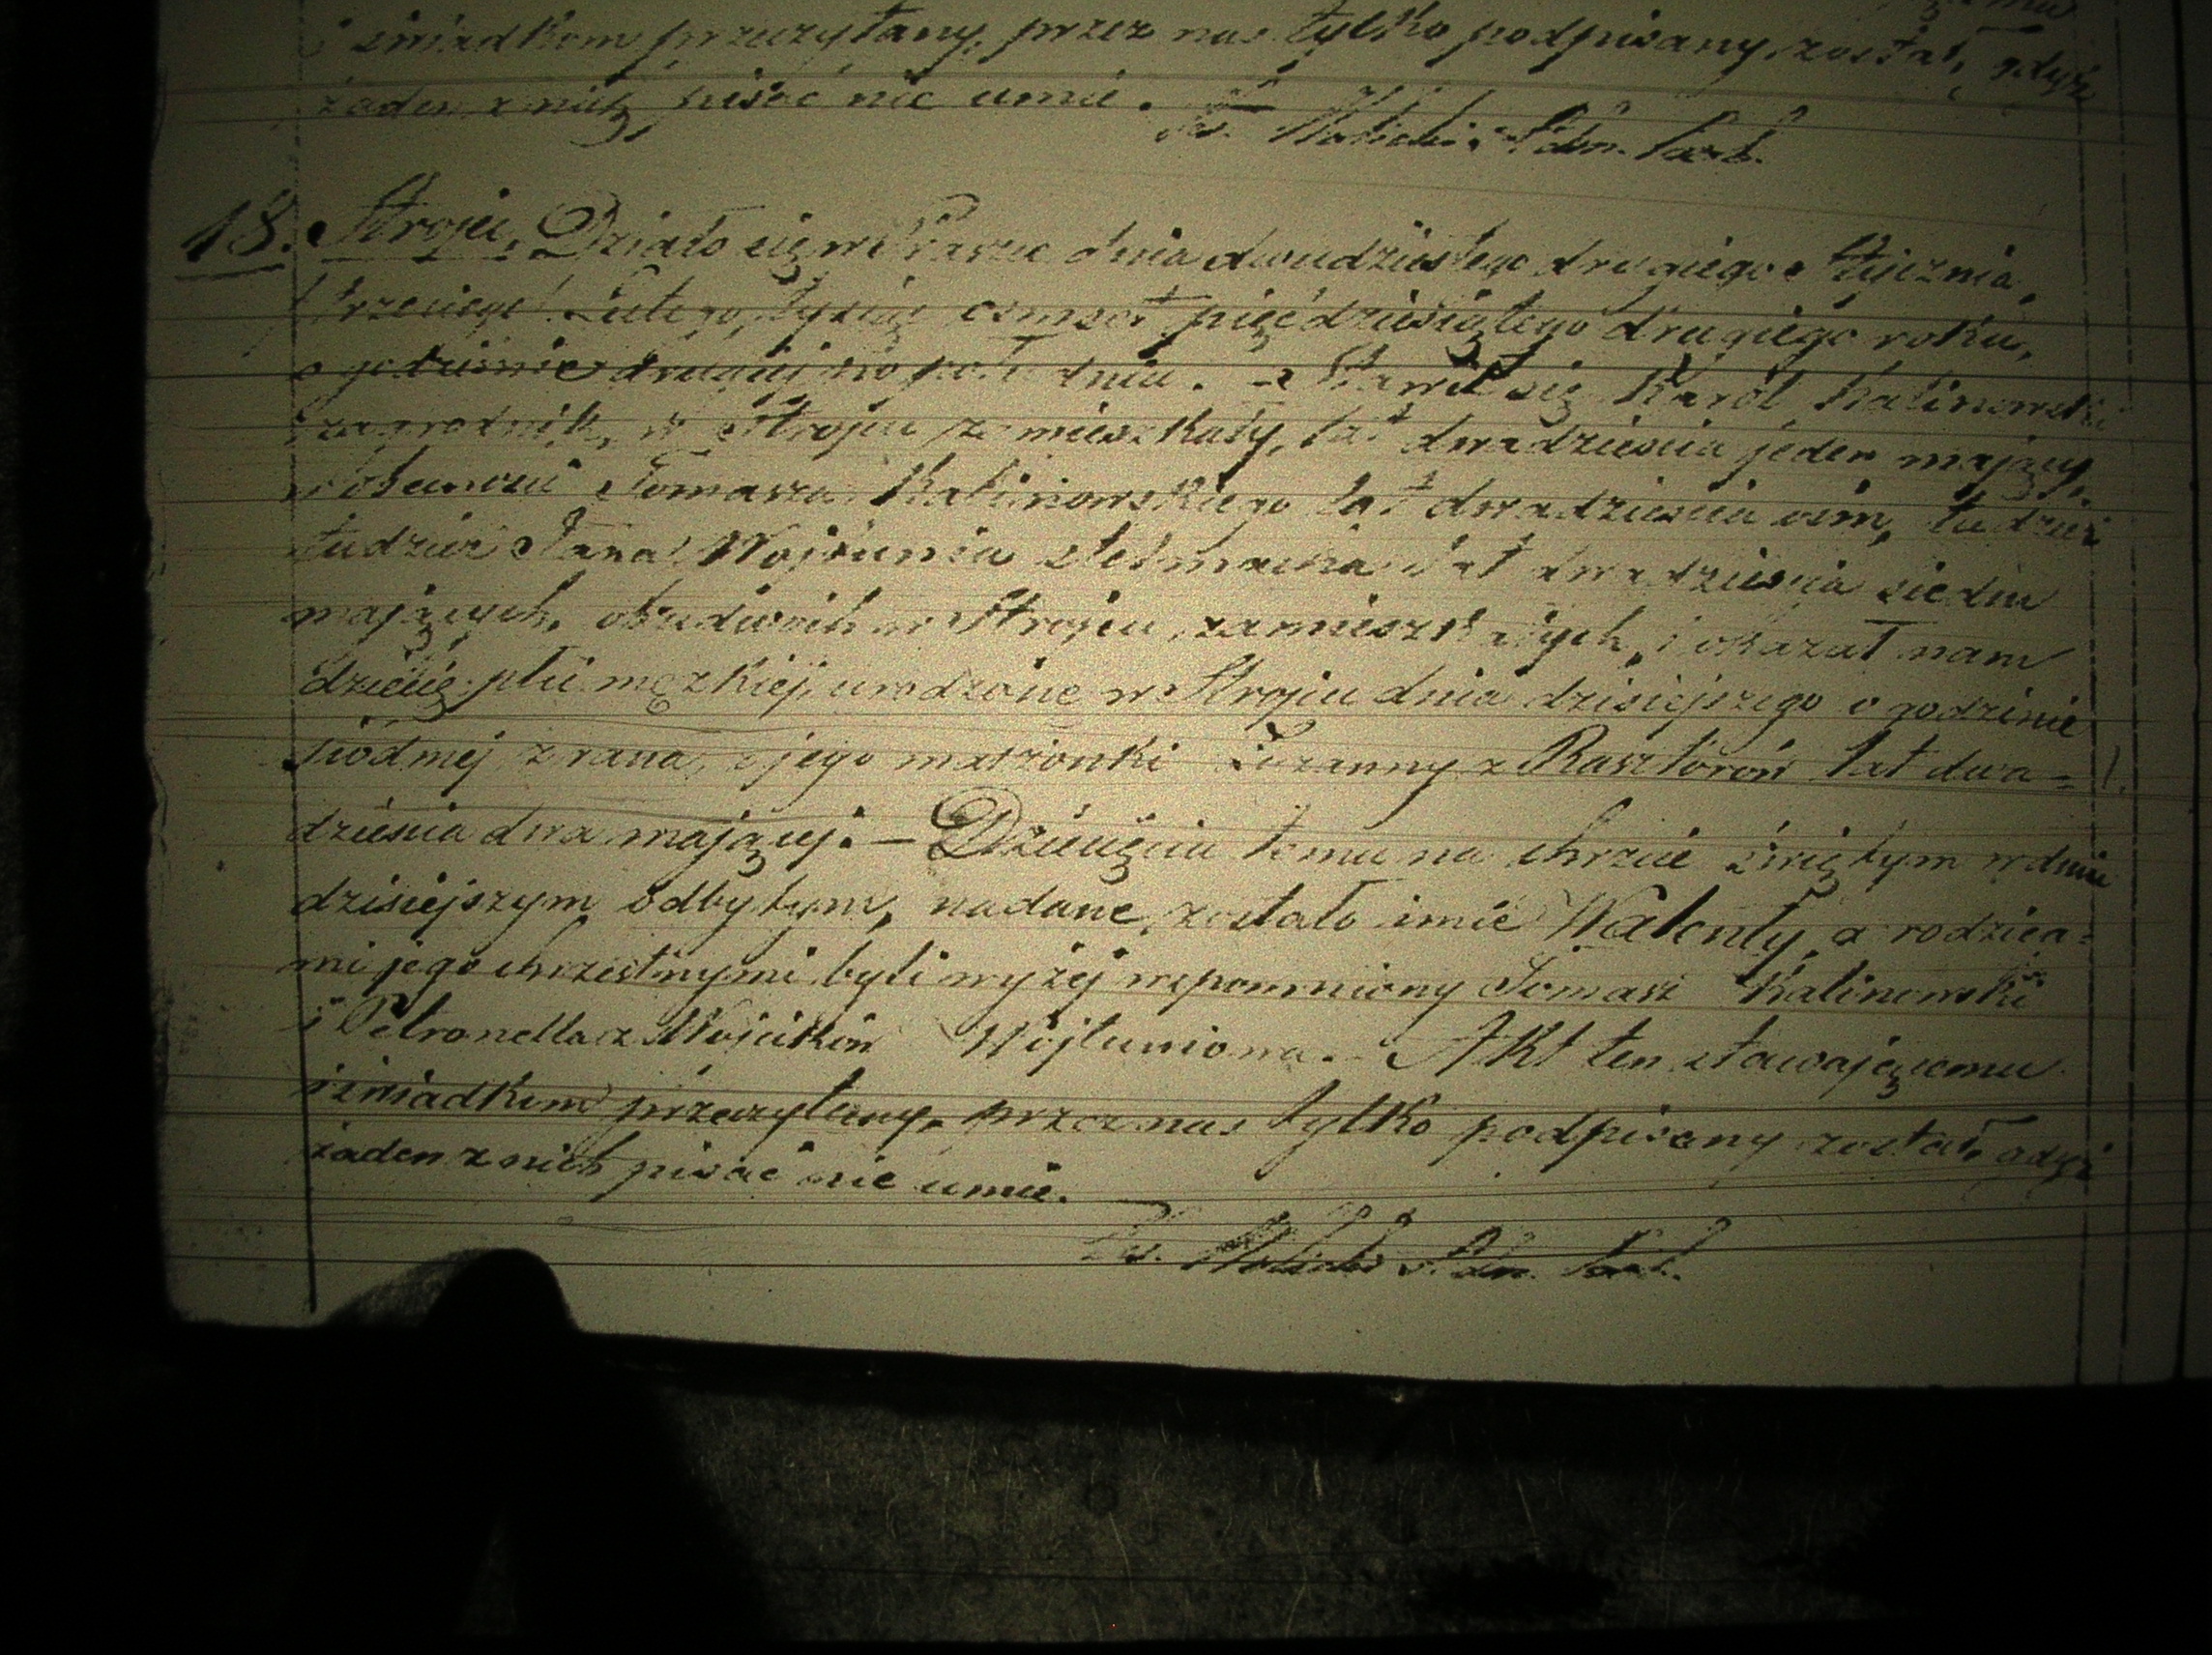 i świadkom przeczytany, przez nas tylko podpisany został, gdyż
żaden z nich pisać nie umié.
18. Stroju. Działo się w dnia dwudziestego drugiego Stycznia,
trzeciego Lutego, tysiąc ośmset pięćdziesiątego drugiego roku,
o godzinie drugiej po południu. – Stawił się Karól Kalinowski
w Stroju zamieszkały, lat dwadzieścia jeden mający,
w obecności Tomasza Kalinowskiego lat dwadzieścia ośm, tudzież
tudzież Jana Wojtunia stelmacha lat dwadzieścia siedm
mających, obudwóch w Stroju zamieszkałych, i okazał nam
dziécię płci męzkiéj, urodzone w Stroju dnia dzisiejszego o godzinie
siódméj z rana, z jego małżonki Zuzanny z lat dwa=
dzieścia dwa mającéj. – Dziécięciu temu na chrzcie świętym w dniu
dzisiejszym odbytym, nadane zostało imie Walenty, a rodzica=
mi jego chrzestnymi byli wyżéj wspomniony Tomasz Kalinowski
i Petronella z Wójcików Wojtuniowa. – Akt ten stawającemu
i świadkom przeczytany, przez nas tylko podpisany został, gdyż
żaden z nich pisać nie umié.